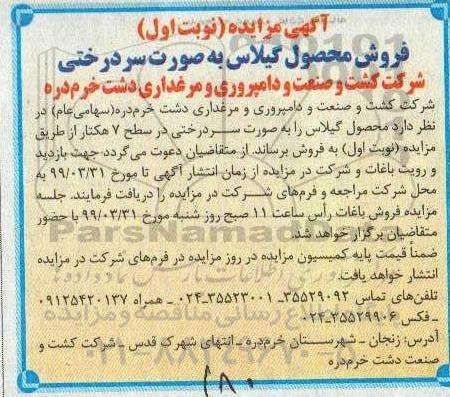 آگهی مزایده (نوبت اول)
فروش محصول گیلاس به صورت سردرختی
شرکت کشت و صنعت و دامپروری و مرغداری دشت خرم‌دره
شرکت کشت و صنعت و دامپروری و مرغداری دشت خرم‌دره(سهامی‌عام) در
نظر دارد محصول گیلاس را به صورت سردرختی در سطح ۷ هکتار از طریق
مزایده (نوبت اول) به فروش برساند. از متقاضیان دعوت می‌گردد جهت بازدید
و رویت باغات و شرکت در مزایده از زمان انتشار آگهی تا مورخ ۹۹/۰۳/۳۱ به
محل شرکت مراجعه و فرم‌های شرکت در مزایده را دریافت فرمایند. جلسه
مزایده فروش باغات رأس ساعت ۱۱ صبح روز شنبه مورخ ۹۹/۰۳/۳۱ با حضور
متقاضیان برگزار خواهد شد.
ضمناً قیمت پایه کمیسیون مزایده در روز مزایده در فرم‌های شرکت در مزایده
انتشار خواهد یافت.
تلفن‌های تماس ۳۵۵۲۹۰۹۲ـ ۳۵۵۲۳۰۰۱ـ۰۲۴ ـ همراه ۰۹۱۲۵۴۲۰۱۳۷
ـ فکس ۳۵۵۲۹۹۰۶ـ۰۲۴
آدرس: زنجان ـ شهرستان خرم‌دره ـ انتهای شهرک قدس ـ شرکت کشت و
صنعت دشت خرم‌دره
ParsNamad
۰۲۱-۸۸۳۴۹۶۷۰
۱۸۰